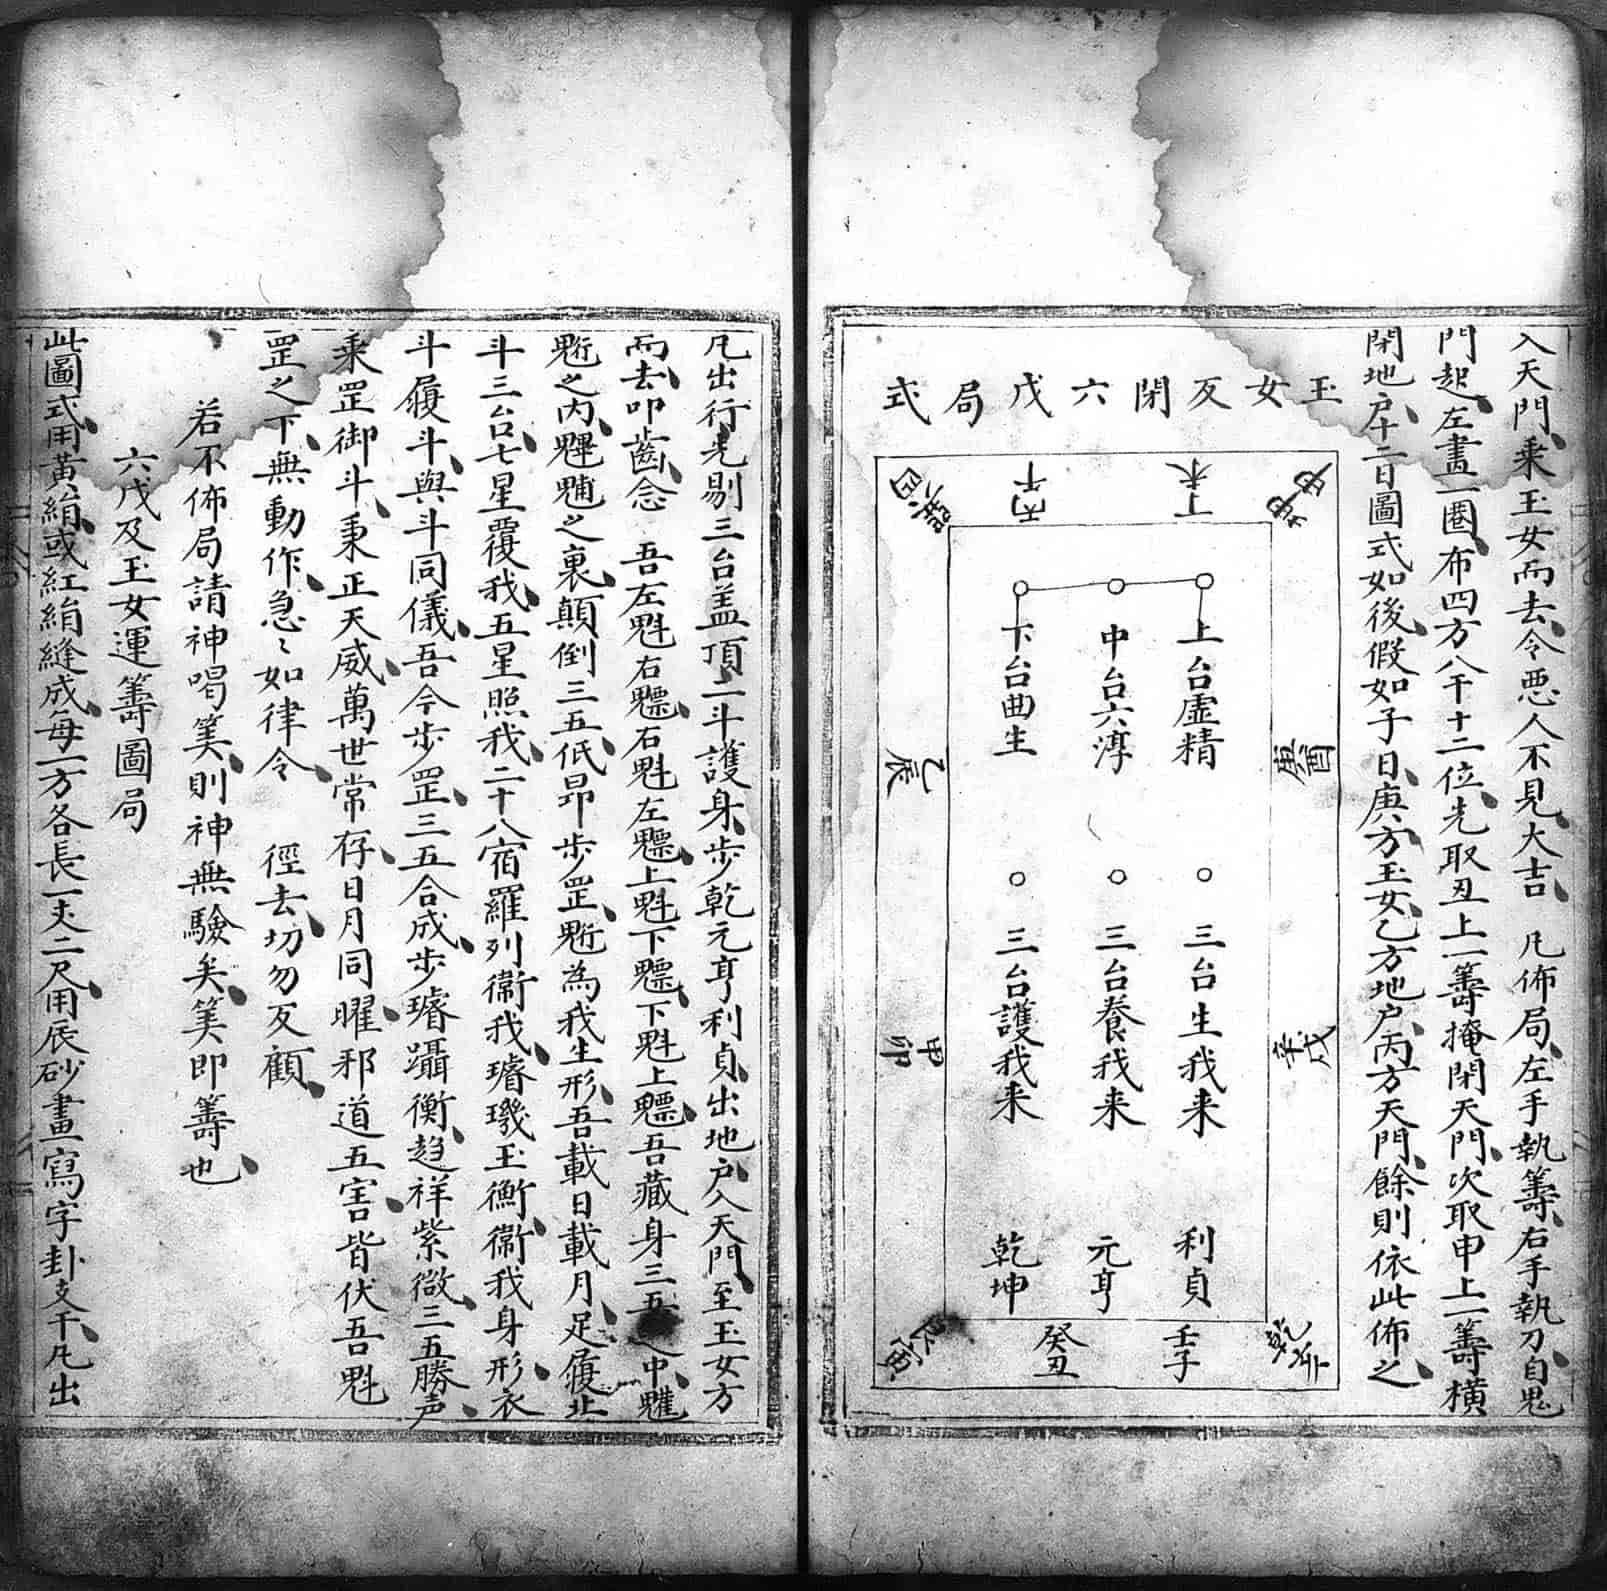 入天門乘玉女而去令悪人不見大吉　凡佈局左手執籌右手執刀自鬼
門起左畫一圈布四方八干十二位先取丑上一籌掩閉天門次取申上一籌橫
閉地户十二日圖式如後假如子日庚方玉女乙方地户丙方天門餘則依此佈之
玉女反閉六戊局式
坤申
丁未
丙午
巽巳
庚酉
乙辰
辛戌
甲卯
乾亥
壬子
癸丑
艮寅
上台虚精
中台六淳
下台曲生
三台生我来
三台養我来
三台護我来
利貞
元亨
乾坤
凡出行先剔三台盖頂二斗護身步乾元亨利貞出地户入天門至玉女方
而去叩齒念　吾左魁右魒右魁左魒上魁下魒下魁上魒吾藏身三五之中魓
魁之内魓魈之裏顛倒三五低昂步罡魁為我生形吾載日載月足履北
斗三台七星覆我五星照我二十八宿羅列衛我璿璣玉衡衛我身形衣
斗履斗與斗同儀吾今步罡三五合成步璿躡衡趋祥紫微三五勝声
乘罡御斗秉正天威萬世常存日月同曜邪道五害皆伏吾魁
罡之下無動作急〻如律令　徑去切勿反顧
若不佈局請神喝筭則神無驗矣筭即籌也
六戊及玉女運籌圖局
此圖式用黃絹或紅絹縫成每一方各長一丈二尺用辰砂畫寫字卦支干凡出